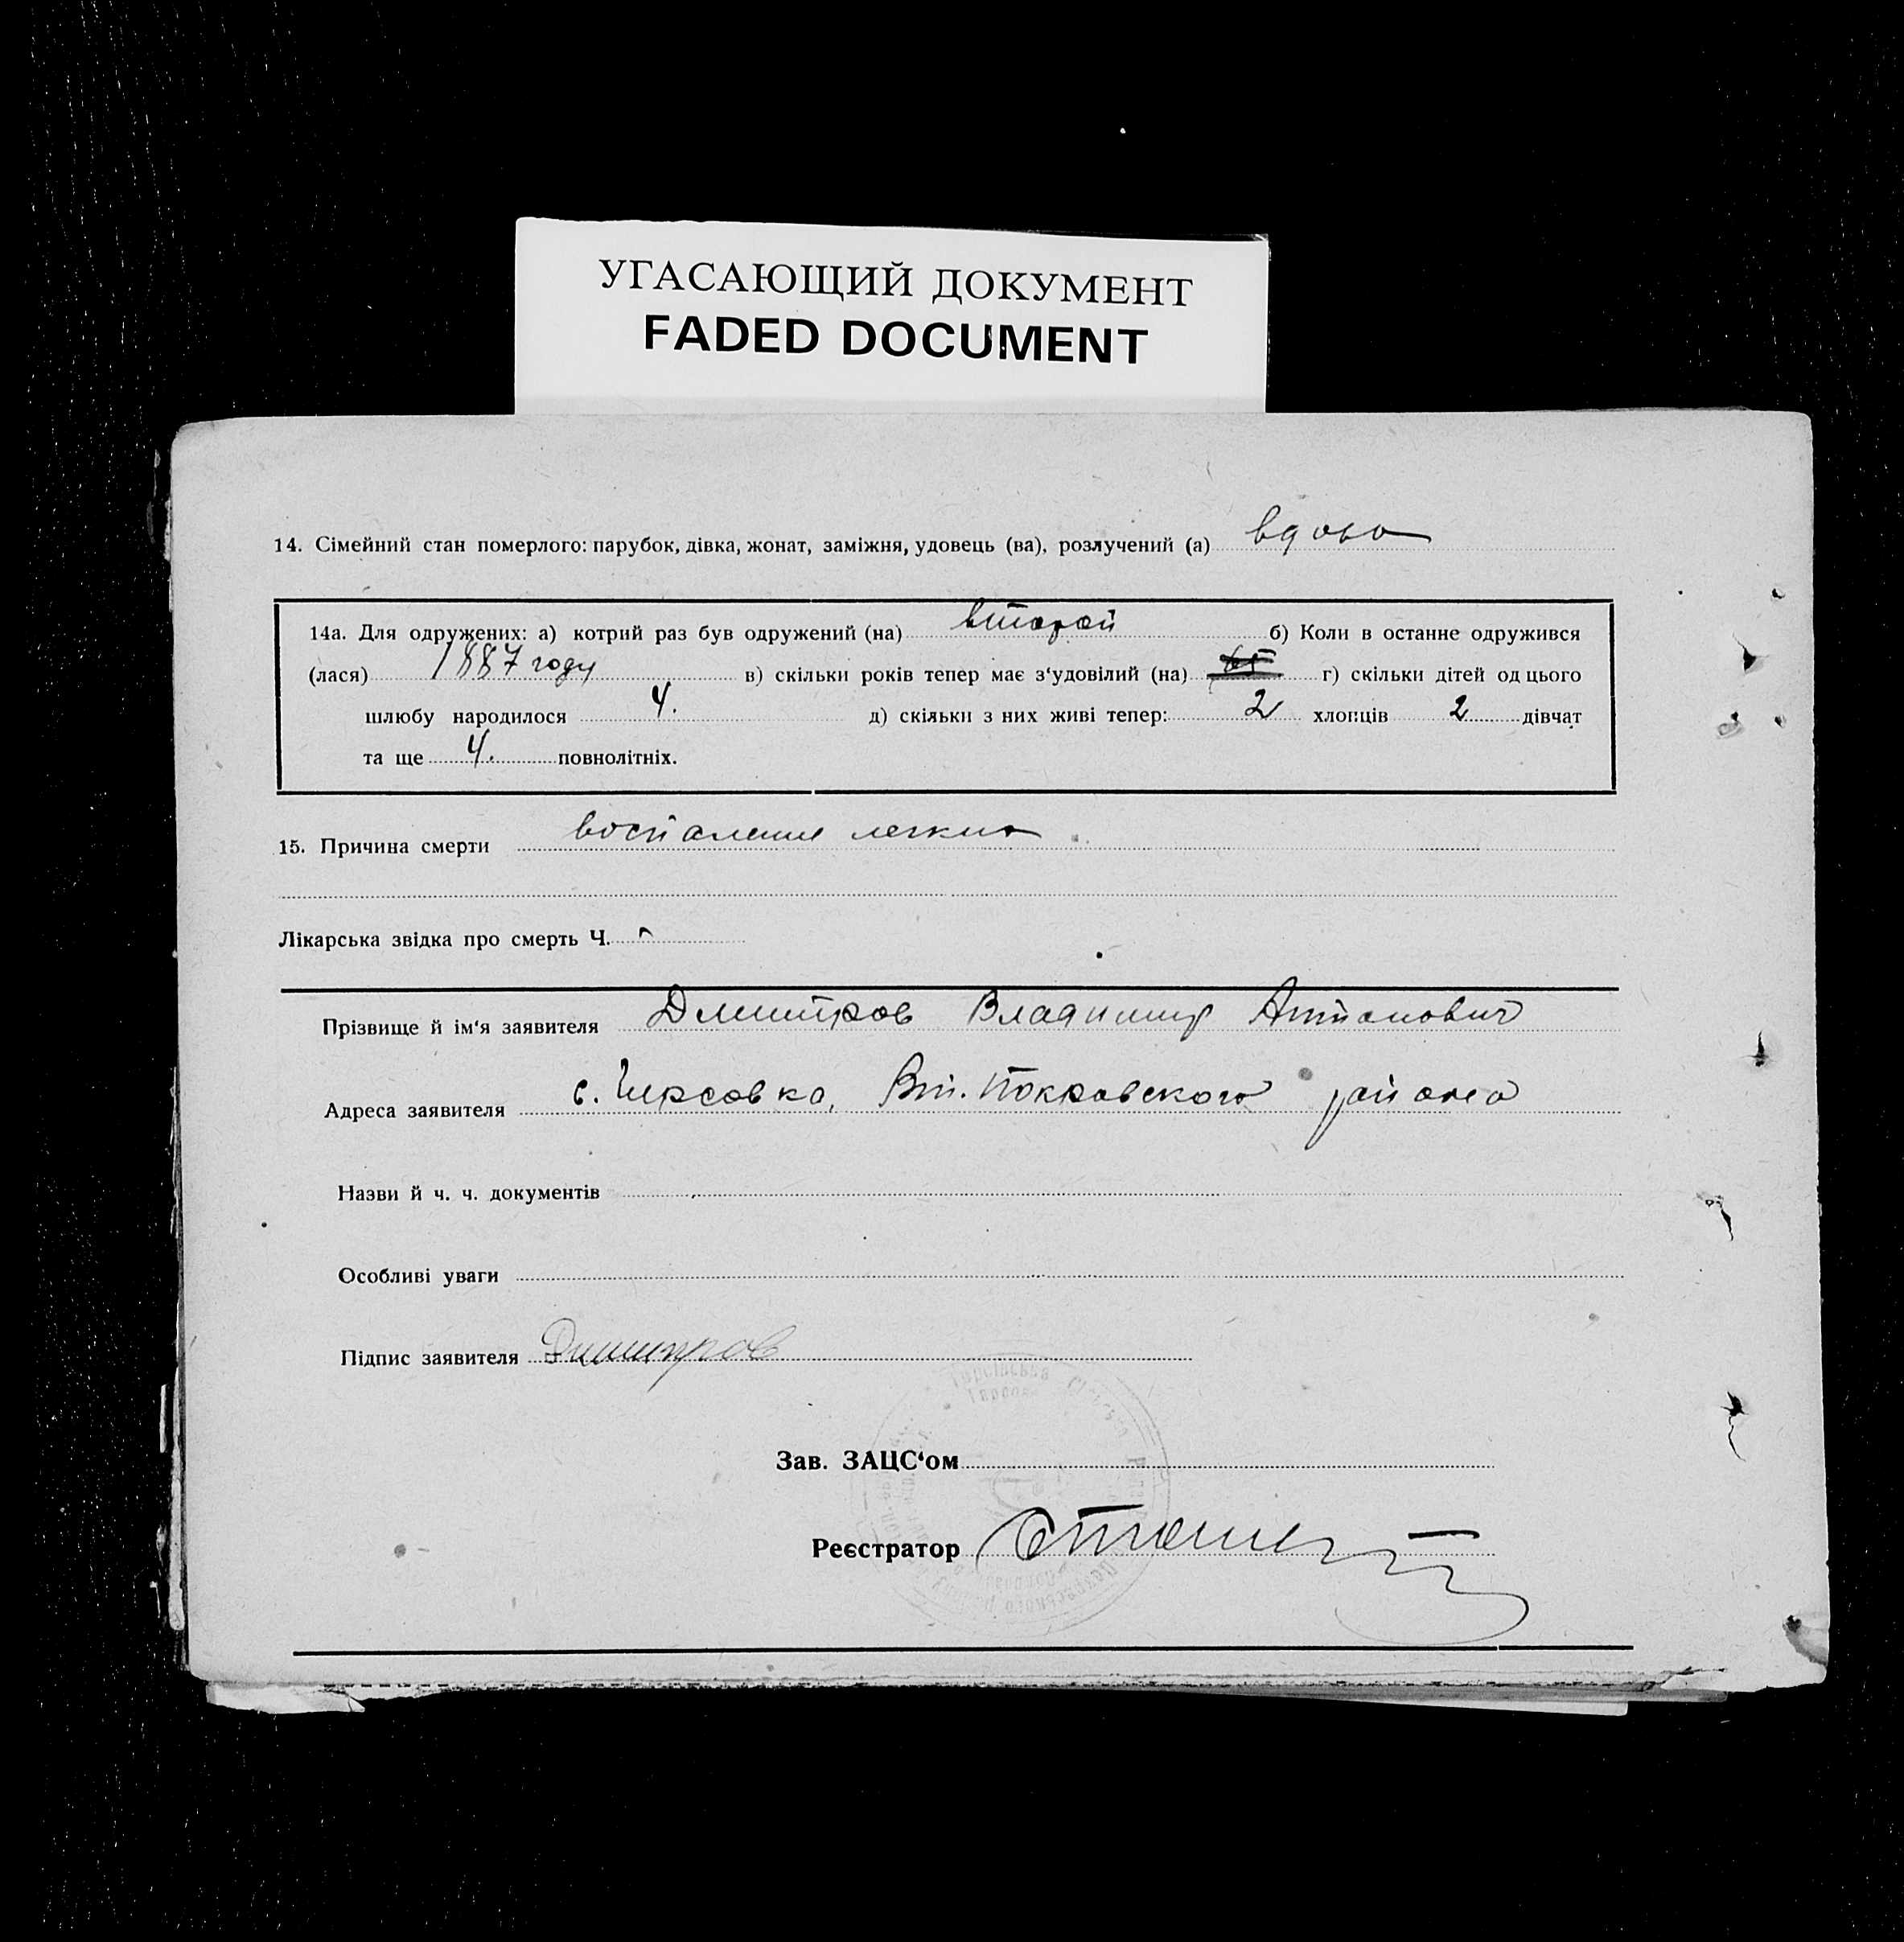 УГАСАЮЩИЙ ДОКУМЕНТ
FADED DOCUMENT
14. Сімейний стан померлого: парубок, дівка, жонат, заміжня, удовець (ва), розлучений (а) вдова
14а. Для одружених: а) котрий раз був одружений (на) второй б) Коли в останне одружився
(лася) 1887 году в) скільки років тепер має з‘удовілий (на) 65 г) скільки дітей од цього
шлюбу народилося 4. д) скільки з них живі тепер: 2 хлопців 2 дівчат
та ще 4. повнолітніх.
15. Причина смерти воспаление легких
Лікарська звідка про смерть Ч.
Прізвище й ім‘я заявителя Дмитров Владимир
Адреса заявителя с. Вт. Покровского района
Назви й ч. ч. документів
Особливі уваги
Підпис заявителя Димитров
Зав. ЗАЦС‘ом
Реєстратор